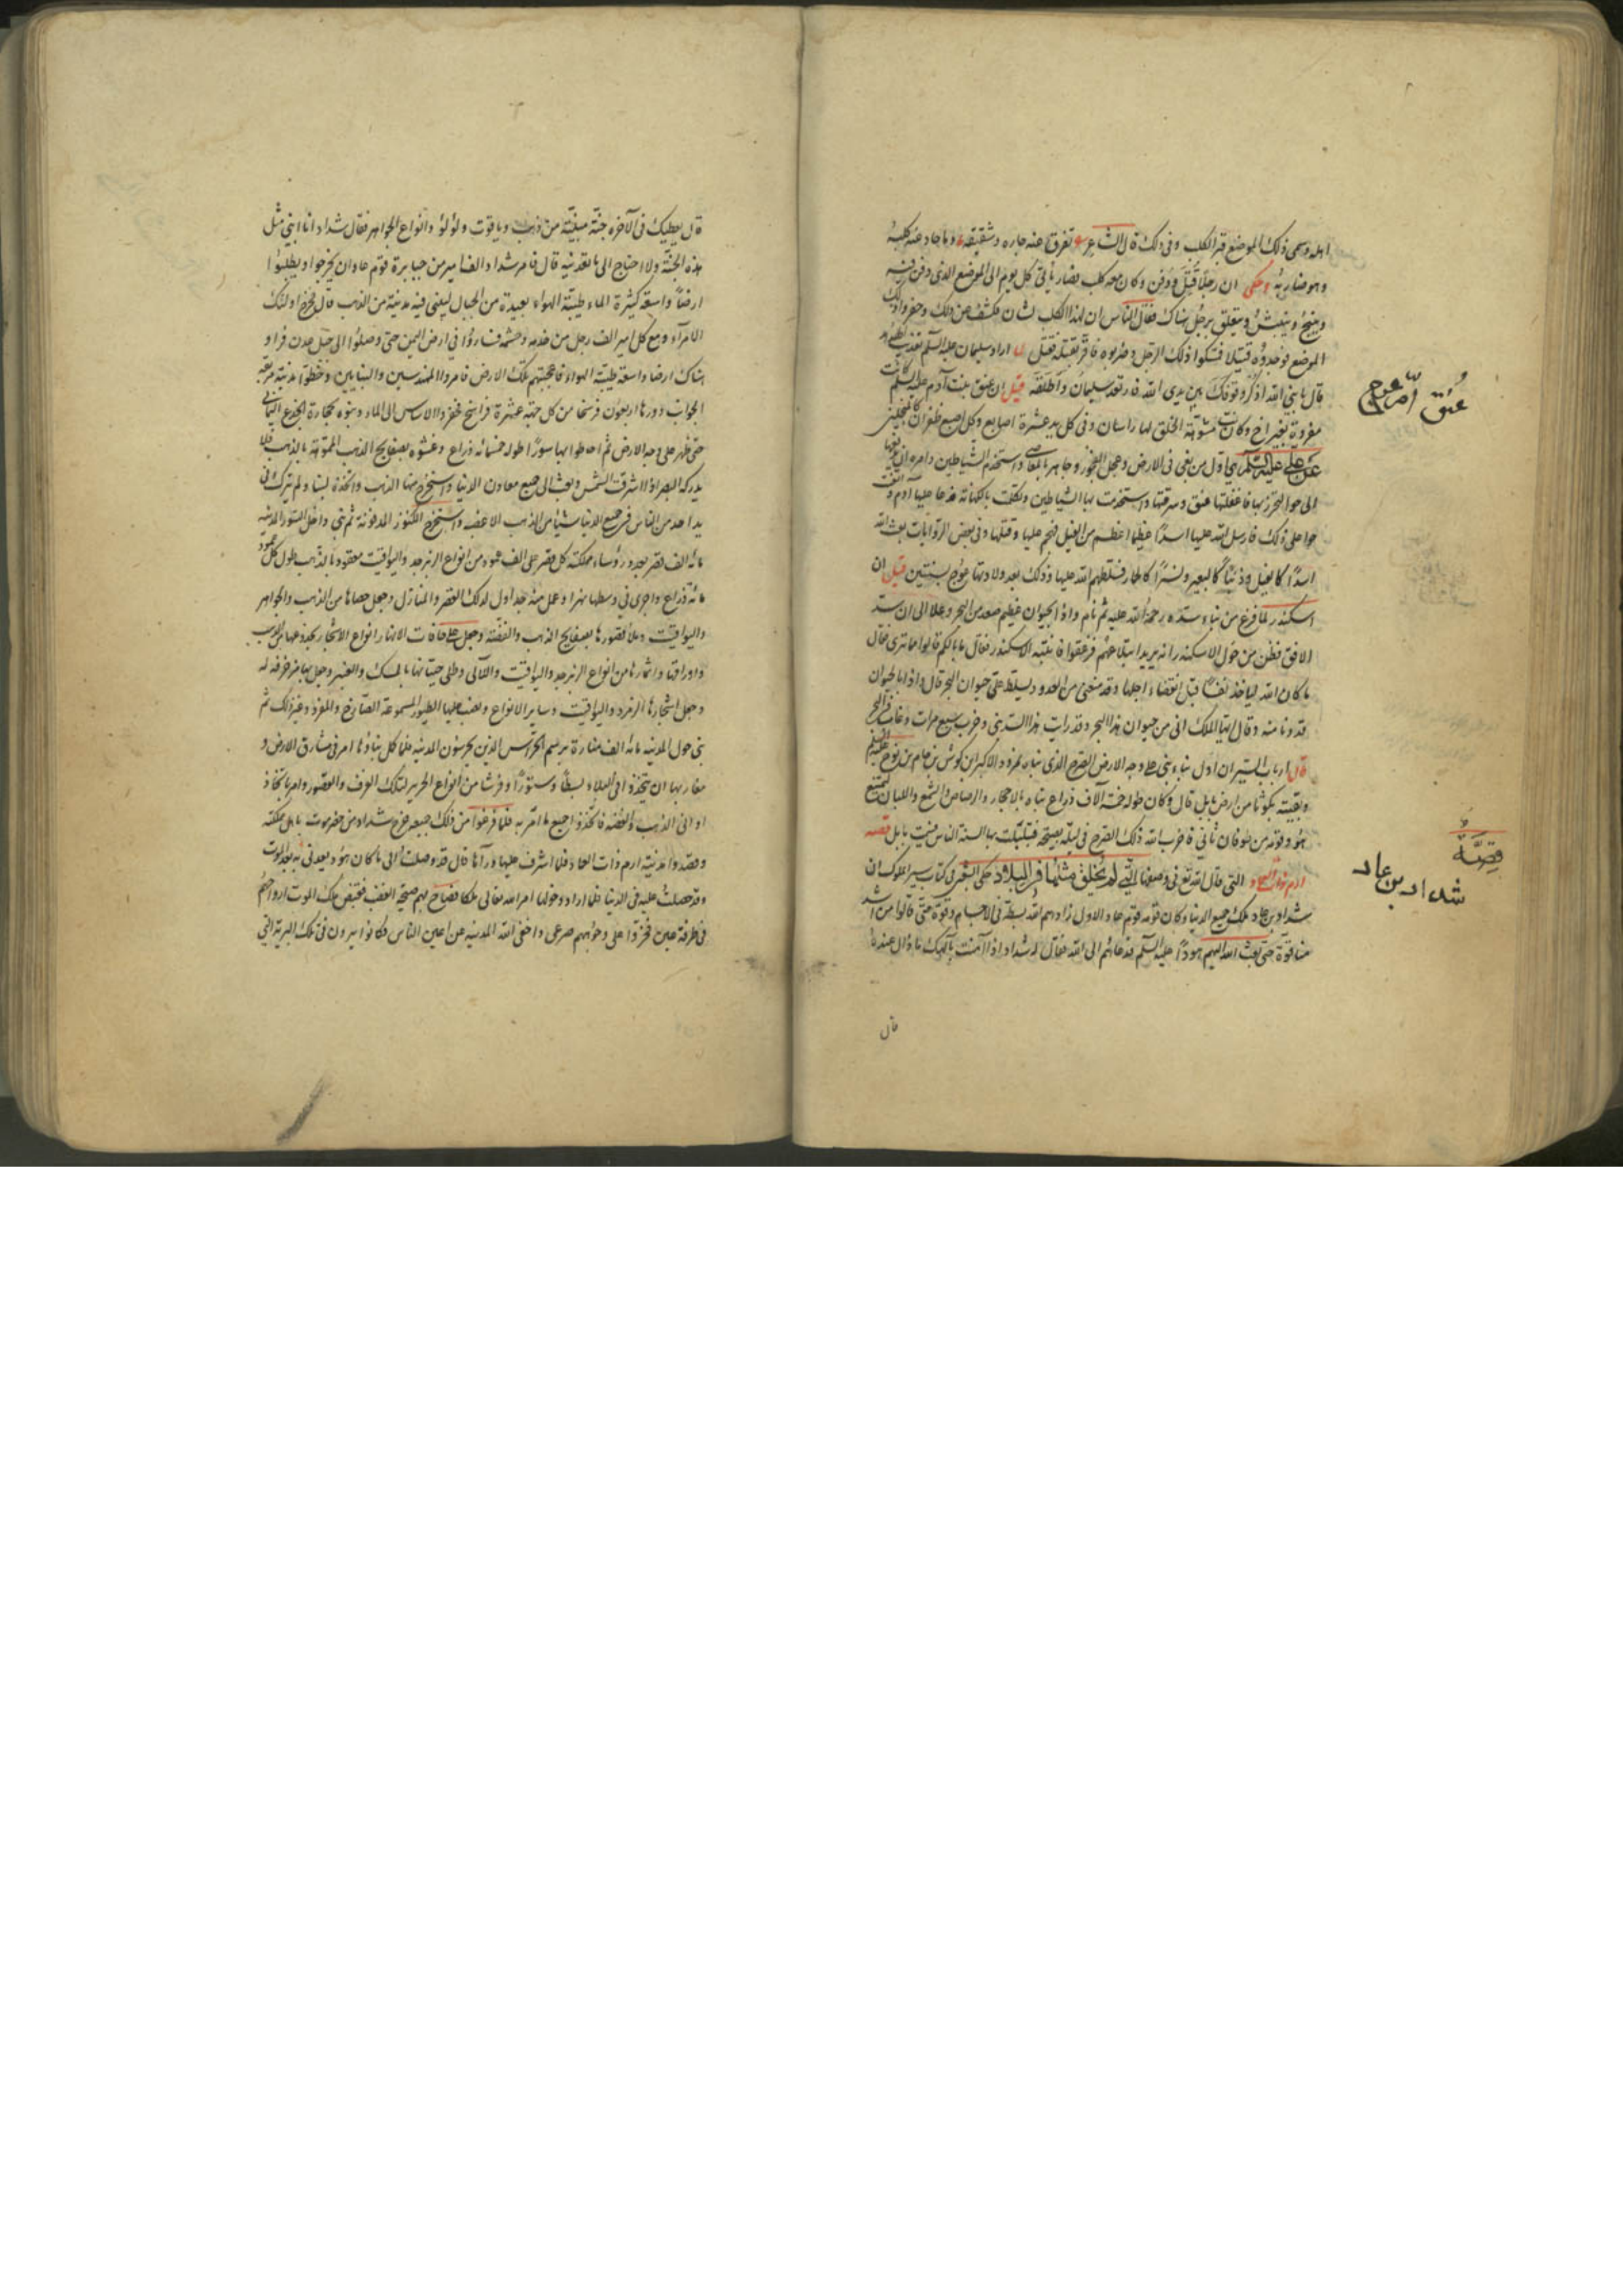 اهله وسمى ذلك الموضع قبر الكلب وفى ذلك قال الشاعر تفرق عنه جاره وشقيقه وما حاد عنه كلبه
وهو ضاربه وحكى ان رجلا قتل ودفن وكان معه كلب فصار يأتى كل يوم الى الموضع الذى دفن فيه
وينبح وينبش ويتعلق برجل هناك فقال الناس ان لهذا الكلب لشان فكشفوا عن ذلك وحفروا ذلك
الموضع فوجدوه قتيلا فمسكوا ذلك الرجل وضربوه فاقر بقتله فقتل لما اراد سليمان عليه السلم تعذيب
قال يا نبى الله اذكر وقوفك بين يدى الله فارتعد سليمان واطلقه قيل ان عنق بنت آدم عليه السلم كانت
مفردة بغير اخ وكانت مشوهة الخلق لها راسان وفى كل يد عشرة اصابع ولكل اصبع ظفران كالمنجلين
عن على عليه السلم هى اول من بغى فى الارض وعمل الفجور وجاهر بالمعاصى واستخدم الشياطين
الى حوا لتحرز بها فاغفلتها عنق وسرقتها واستخدمت بها الشياطين وتكلمت بالكهانة فدعا عليها آدم و
حوا على ذلك فارسل الله عليها اسدا عظيما اعظم من الفيل فهجم عليها وقتلها وفى بعض الروايات بعث الله
اسدا كالفيل وذئبا كالبعير ونسرا كالحمار فسلطهم الله عليها وذلك بعد ولادتها عوج بسنتين قيل ان
اسكندر لما فرغ من بناء سده رحمة الله عليه ثم نام واذا بحيوان عظيم صعد من البحر وعلا الى ان سد
الافق فظن من حول الاسكندر انه يريد ابتلاعهم فزعقوا فانتبه الاسكندر فقال ما بالكم قالوا ما ترى فقال
ما كان الله لياخذ نفسا قبل انقضاء اجلها وقد منعنى من العدو ويسلط على حيوان البحر قال واذا بالحيوان
قد دنا منه وقال ايها الملك انى من حيوان هذا البحر وقد رايت هذا السد بنى وخرب سبع مرات وغاب فى البحر
قال ارباب السير ان اول بناء بنى على وجه الارض الصرح الذى بناه نمرود الاكبر ابن كوش بن حام بن نوح عليه السلم
وبقيته بكوثا من ارض بابل قال وكان طوله خمسة آلاف ذراع بناه بالاحجار والرصاص والشمع واللبان ليمتنع
هو وقومه من طوفان ثانى فاخرب الله ذلك الصرح فى ليلة بصيحة فتبلبلت بها السنة الناس فسميت بابل قصة
ارم ذات العماد التى قال الله تع فى وصفها التى لم يخلق مثلها فى البلاد حكى الشعبى فى كتاب سير الملوك ان
شداد بن عاد ملك جميع الدنيا وكان قومه قوم عاد الاول زادهم الله بسطة فى الاجسام وقوة حتى قالوا من اشد
منا قوة حتى بعث الله اليهم هودا عليه السلم فدعاهم الى الله فقال له شداد اذا آمنت بآلهك ماذا لى عنده
قال
عنق ام عوج
قصة
شداد بن عاد
قال يعطيك فى الآخرة جنة مبنية من ذهب وياقوت ولؤلؤ وانواع الجواهر فقال شداد انا ابنى مثل
هذه الجنة ولا احتاج الى ما تعدنيه قال فامر شداد الف امير من جبابرة قوم عاد ان يخرجوا ويطلبوا
ارضا واسعة كثيرة الماء طيبة الهواء بعيدة من الجبال ليبنى فيه مدينة من الذهب قال فخرج اولئك
الامرآء ومع كل امير الف رجل من خدمه وحشمه فساروا فى ارض اليمن حتى وصلوا الى جبل عدن فراو
هناك ارضا واسعة طيبة الهواء فاعجبتهم تلك الارض فامروا المهندسين والبنايين وخطوا مدينة مربعة
الجوانب دورها اربعون فرسخا من كل جهة عشرة فراسخ فحفروا الاساس الى الماء وبنوه بحجارة الجزع اليمانى
حتى ظهر على وجه الارض ثم احاطوا بها سورا طوله خمسمائة ذراع وغشوه بصفايح الذهب المموهة بالذهب فلا
يدركه البصر اذا اشرقت الشمس وبعث الى جميع معادن الدنيا واستخرج منها الذهب واتخذه لبنا ولم يترك فى
يد احد من الناس فى جميع الدنيا شيئا من الذهب الا غصبه واستخرج الكنوز المدفونة ثم بنى داخل السور المدينة
مائة الف قصر بعدد رؤساء مملكته كل قصر على الف عمود من انواع الزبرجد واليواقيت معقودة بالذهب طول كل عمود
مائة ذراع واجرى فى وسطها نهرا وعمل منه جداول لذلك القصر والمنازل وجعل حصاها من الذهب والجواهر
واليواقيت وملأ قصورها بصفايح الذهب والفضة وجعل على حافات الانهار انواع الاشجار بجذوعها من الذهب
واوراقها واثمارها من انواع الزبرجد واليواقيت واللآلى وطلى حيطانها بالمسك والعنبر وجعل بها مزخرفة له
وجعل اشجارها الزمرد واليواقيت وساير الانواع ونصب عليها الطيور المسموعة الصادح والمغرد وغير ذلك ثم
بنى حول المدينة مائة الف منارة برسم الحراس الذين يحرسون المدينة فلما كمل بناؤها امر فى مشارق الارض و
مغاربها ان يتخذوا فى البلاد بسطا وستورا وفرشا من انواع الحرير لتلك الغرف والقصور وامر باتخاذ
اوانى الذهب والفضة فاتخذوا جميع ما امر به فلما فرغوا من ذلك جميعه خرج شداد من حضرموت باهل مملكته
وقصد المدينة ارم ذات العماد فلما اشرف عليها ورآها قال قد وصلت الى ما كان هود يعدنى به بعد الموت
وقد حصلت عليه فى الدنيا فلما اراد دخولها امر الله تعالى ملكا فصاح بهم صيحة الغضب فقبض ملك الموت ارواحهم
فى طرفة عين فخروا على وجوههم صرعى واخفى الله المدينة عن اعين الناس وكانوا يرون فى تلك البرية التى